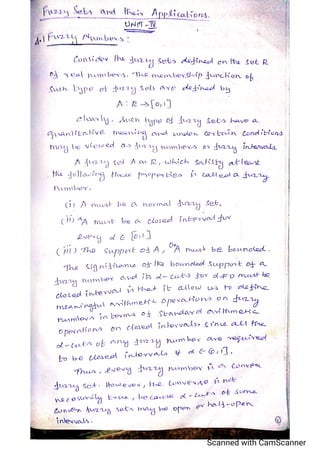 Fuzzy Sets and their Applications.
UNIT-IV
4.1 Fuzzy Numbers:
Consider the fuzzy sets defined on the set R
of real numbers. The membership function of
such type of fuzzy sets are defined by
A: R → [0,1]
Clearly, such type of fuzzy sets have a
quantitative meaning and under certain conditions
may be viewed as fuzzy numbers or fuzzy intervals
A fuzzy set A on R, which satisfy atleast
the following three properties is called a fuzzy
number.
(i) A must be a normal fuzzy set.
(ii) αA must be a closed interval for
every α ∈ (0,1]
(iii) The support of A, 0+A must be bounded.
The significance of the bounded support of a
fuzzy number and its α-cuts for α≠0 must be
closed interval is that it allow us to define
meaningful arithmetic operations on fuzzy
numbers in terms of standard arithmetic
operations on closed intervals, since all the
α-cuts of any fuzzy number are required
to be closed intervals ∀ α ∈ (0,1].
Thus, every fuzzy number is a convex
fuzzy set. However, the converse is not
necessarily true, because α-cuts of some
convex fuzzy sets may be open or half-open
intervals.
Scanned with CamScanner